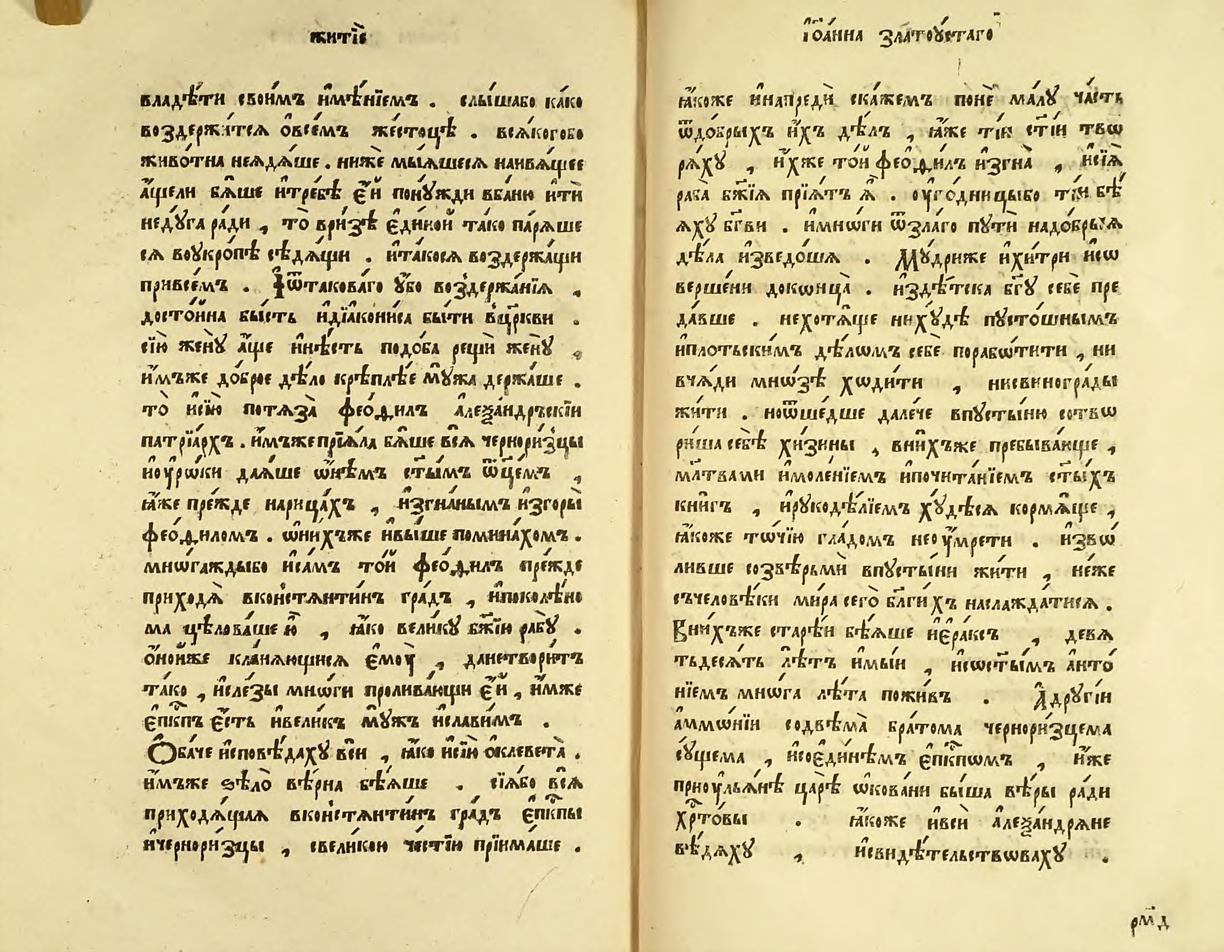 житїѐ
владѣ́ти свои́мъ и҆мѣ́нїемъ . слы́шабо ка́ко
воздержи́тсѧ ѻ҆все́мъ же́стоцѣ . всѧ́когобо
живо́тна неꙗдѧ́ше . ни́же мы́ѧшесѧ наивѧ́щее
а҆́щели бѧ́ше и҆тре́бѣ є҆́й пону́жди вба́ню и҆ти́
неду́га ра́ди , то̀ ври́зѣ є҆ди́ной та́ко па́рѧше
сѧ воукро́пѣ сѣдѧ́щи . и҆та́косѧ воздержа́щи
привсе́мъ . І҆ѿтакова́го ᲂу҆́бо воздержа́нїѧ ,
досто́йна бы́сть и҆дїа́кониса бы́ти вцр҃кви .
сїю̀ жену̀ а҆́ще и҆нѣ́сть подо́ба рещѝ жену̀ ,
и҆́мъже до́брое дѣ́ло крѣ́плѣе мꙋ́жа держа́ше .
то̀ и҆сїю̀ потѧза̀ фео́филъ а҆леѯа́ндръскїи
патрїа́рхъ . и҆́мъжепрїѧ́ла бѧ́ше всѧ̀ черноризцы
и҆ᲂу҆ро́ки даѧ́ше ѡ҆нѣ́мъ ст҃ы́мъ ѻ҆ц҃е́мъ ,
ꙗ҆́же пре́жде нарица́хъ , и҆згна́нымъ и҆згоры̀
фео́филомъ . ѡ҆ни́хъже и҆вы́ше помина́хомъ .
мно́гаждыбо и҆са́мъ то́й фео́филъ пре́жде
приходѧ̀ вконстѧнти́нъ гра́дъ , и҆поколѣ́но
ма цѣлова́ше ю҆̀ , ꙗ҆́ко вели́ку бж҃їю рабу̀ .
ѻ҆но́йже кла́нѧющисѧ є҆мꙋ̀ , данетвори́тъ
та́ко , и҆сле́зы мно́ги пролива́ющи є҆́й , и҆́мже
є҆пкпъ є҆́сть и҆вели́къ мꙋ́жъ и҆сла́вимъ .
Ѻ҆́баче и҆сповѣ́даху всѝ , ꙗ҆́ко и҆сїю̀ ѻ҆клевета̀ .
и҆́мъже ѕѣлѡ̀ вѣ́рна бѣ́ѧше . сїѧ́бо всѧ̀
приходѧ́щаѧ вконстѧнти́нъ гра́дъ є҆пкпы
и҆черноризцы , свели́кою че́стїю прїима́ше .
і҆ѡа́нна златоу́стаго
ꙗ҆́коже и҆напредѝ ска́жемъ понѐ ма́лу ча́сть
ѿдо́брыхъ и҆́хъ дѣ́лъ , ꙗ҆́же ті́и ст҃і́и твѡ
рѧ́ху , и҆́хже то́й фео́филъ и҆згна̀ , и҆сїѧ̀
раба̀ бж҃їѧ прїѧ́тъ ѧ҆̀ . ᲂу҆го́дницыбо ті́и бѣ́
ѧху бг҃ви . и҆мно́ги ѿзла́го путѝ надо́брыѧ
дѣ́ла и҆зведо́шѧ . Му́дриже и҆хи́три и҆сѡ
верше́ни доконца̀ . и҆здѣ́тска бг҃у себѐ пре
да́вше . нехотѧ́ще ниху́дѣ пусто́шнымъ
и҆пло́тьскимъ дѣ́лѡмъ себѐ порабо́тити , ни
вчѧ́ди мно́зѣ ходи́ти , нисвиногра́ды
жи́ти . ноѿше́дше дале́че впусты́ню сотвѡ
ри́ша себѣ̀ хи́зины , вни́хъже пребыва́юще ,
мл҃твами и҆моле́нїемъ и҆почита́нїемъ ст҃ы́хъ
кни́гъ , и҆рукодѣ́лїемъ ху́дѣсѧ кормѧ́ще ,
ꙗ҆́коже то́чїю гла́домъ неоумре́ти . и҆звѡ
ливше созвѣрьмѝ впусты́ни жи́ти , не́же
съчеловѣ́ки ми́ра сего̀ бл҃ги́хъ наслажда́тисѧ .
Вни́хъже старѣ́и бѣ́ѧше и҆є́раксъ , девѧ
тьдесѧ́тъ лѣ́тъ и҆мы́и , и҆сост҃ы́мъ а҆нто́
нїемъ мно́га лѣ́та пожи́въ . А҆другі́и
а҆ммѡ́нїи содвѣма̀ бра́тома черноризцема
су́щема , и҆соеди́нѣмъ є҆пкпомъ , и҆́же
приоу҆лья́нѣ царѣ̀ ѡ҆ко́вани бы́ша вѣ́ры ра́ди
хр҃то́вы . ꙗ҆́коже и҆всѝ а҆леѯандрѧ́не
вѣ́дѧху , и҆свидѣ́тельствоваху .
рм҃д